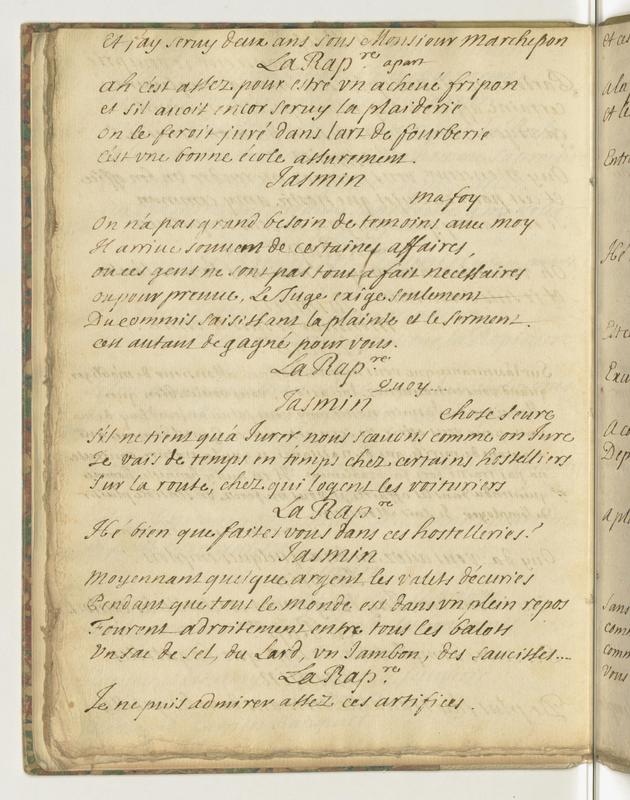 et j'ay seruy deux ans sous Monsieur Marchepon
La Rap.re apart
ah c'est assez pour estre vn acheué fripon
et s'il auoit encor seruy la plaiderie
on le feroit juré dans l'art de fourberie
c'est vne bonne école assurement.
Jasmin
ma foy
On n'a pas grand besoin de temoins auec moy
Il arriue souuent de certaines affaires,
ou ces gens ne sont pas tout a fait necessaires
ou pour preuue, Le Juge exige seulement
Du commis saisissant la plainte et le serment.
c'est autant de gagné pour vous.
La Rap.re
Quoy....
Jasmin
chose seure
s'il ne tient qu'à Jurer nous scauons comme on Jure
Je vais de temps en temps chez certains hostelliers
sur la route, chez qui logent les voituriers
La Rap.re
Hé bien que faites vous dans ces hostelleries?
Jasmin
Moyennant quelque argent les valets d'écuries
Pendant que tout le monde est dans vn plein repos
Fourent adroitement entre tous les balots
Un sac de sel, du Lard, vn Jambon, des saucisses....
La Rap.re
Je ne puis admirer assez ces artifices.